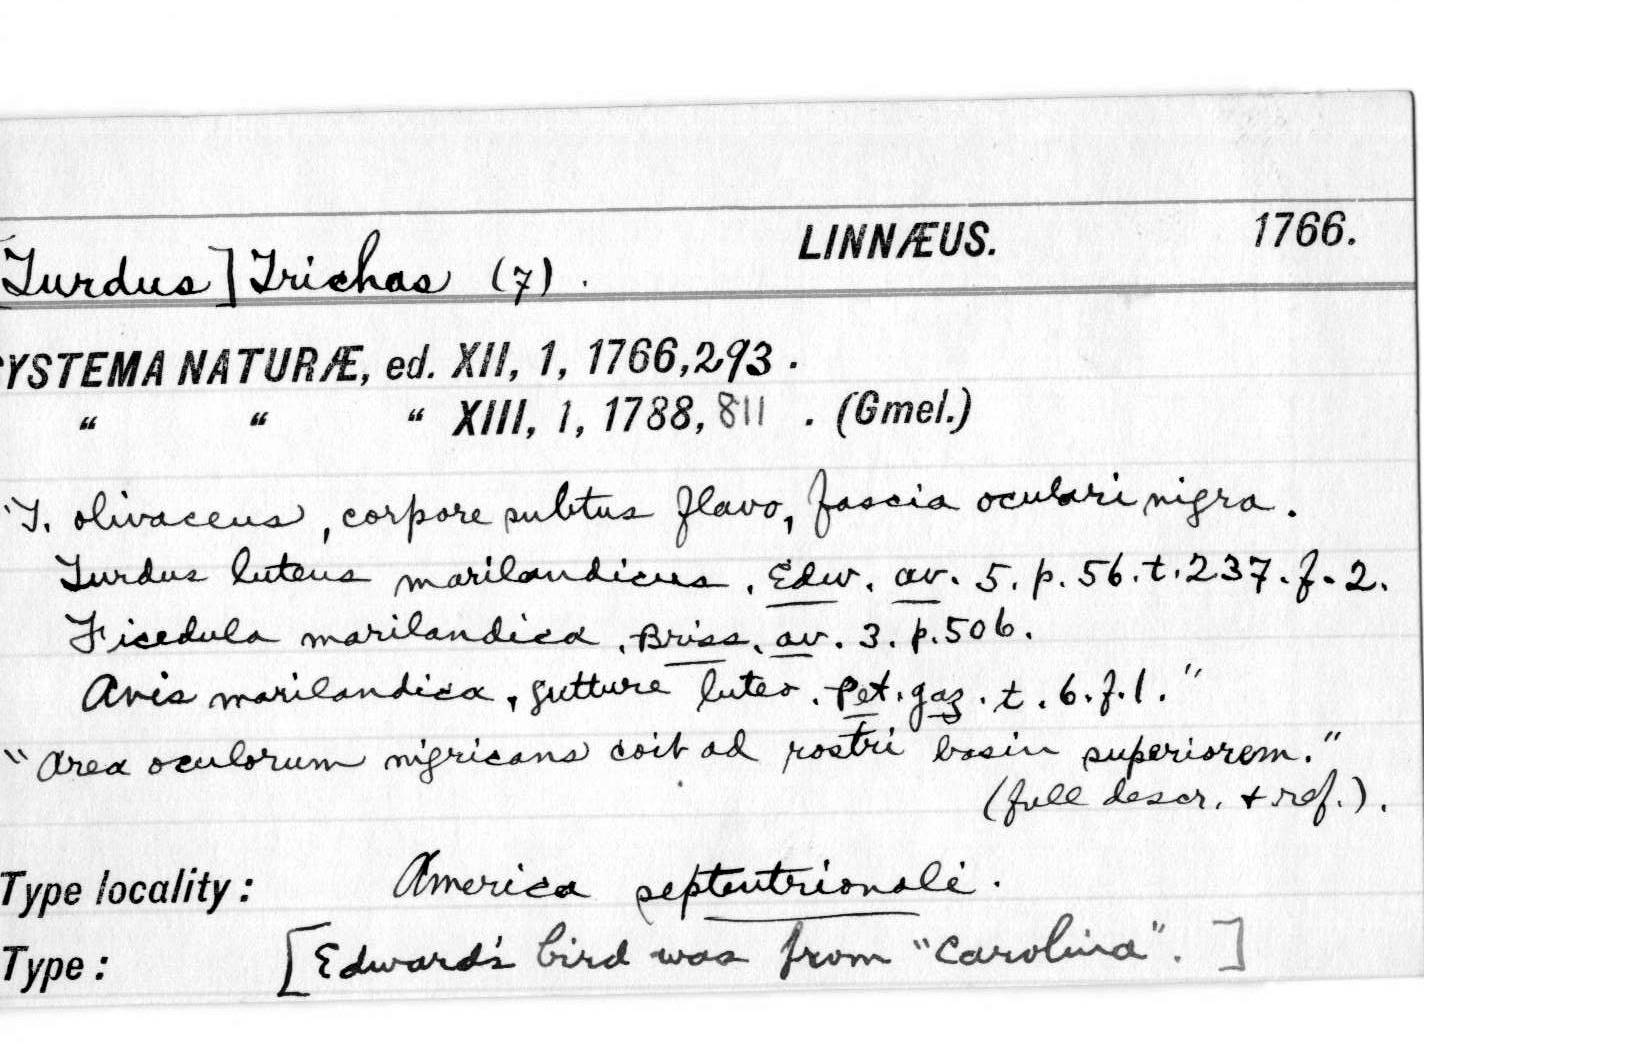 [Turdus] Trichas (7). LINNÆUS. 1766.
SYSTEMA NATURÆ, ed. XII, 1, 1766, 293.
“ “ “ XIII, 1, 1788, 811. (Gmel.)
"T. olivaceus, corpore subtus flavo, fascia oculari nigra.
Turdus luteus marilandicus. Edw. av. 5. p. 56. t. 237. f. 2.
Ficedula marilandica. Briss. av. 3. p. 506.
Avis marilandica, gutture luteo. Pet. gaz. t. 6. f. 1."
"Area oculorum nigricans coit ad rostri basin superiorem."
(full descr. + ref.).
Type locality: America septentrionali.
Type: [Edward's bird was from "Carolina".]